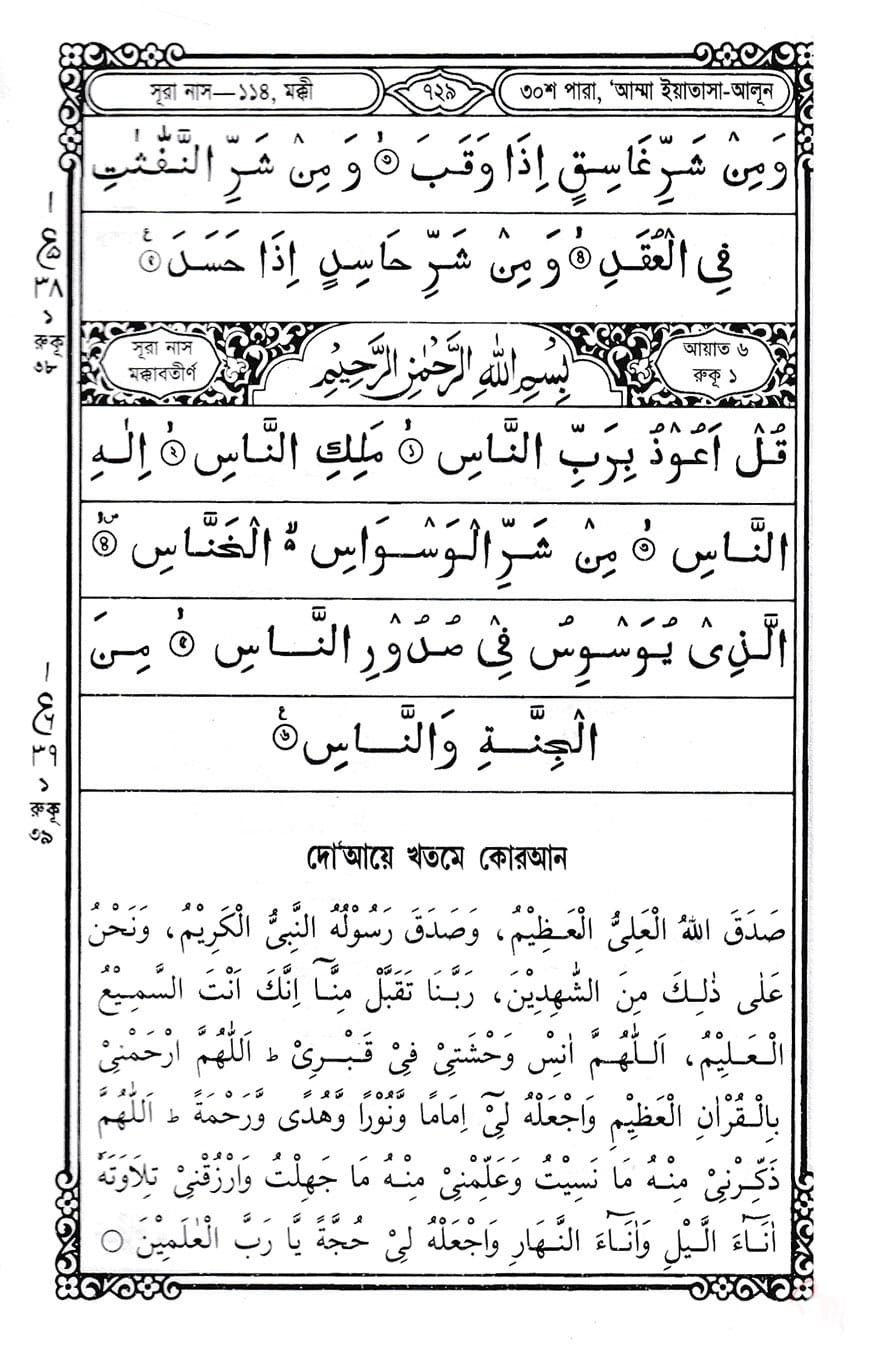 সূরা নাস—১১৪, মক্কী
৭২৯
৩০শ পারা, ‘আম্মা ইয়াতাসা-আলূন
وَمِنْ شَرِّ غَاسِقٍ اِذَا وَقَبَ ۙ۝৩ وَ مِنْ شَرِّ النَّفّٰثٰتِ
فِي الْعُقَدِ ۙ۝৪ وَ مِنْ شَرِّ حَاسِدٍ اِذَا حَسَدَ ۝৫
১
ع
৫
৩৮
১
রুকূ
৩৮
সূরা নাস
মক্কাবতীর্ণ
بِسْمِ اللّٰهِ الرَّحْمٰنِ الرَّحِيْمِ
আয়াত ৬
রুকূ ১
قُلْ اَعُوْذُ بِرَبِّ النَّاسِ ۙ۝১ مَلِكِ النَّاسِ ۙ۝২ اِلٰهِ
النَّاسِ ۙ۝৩ مِنْ شَرِّ الْوَسْوَاسِ ۙ الْخَنَّاسِ ۝৪
الَّذِىْ يُوَسْوِسُ فِىْ صُدُوْرِ النَّاسِ ۙ۝৫ مِنَ
الْجِنَّةِ وَالنَّاسِ ۝৬
১
ع
৬
৩৯
১
রুকূ
৩৯
দো‘আয়ে খতমে কোরআন
صَدَقَ اللّٰهُ الْعَلِىُّ الْعَظِيْمُ، وَصَدَقَ رَسُوْلُهُ النَّبِىُّ الْكَرِيْمُ، وَنَحْنُ
عَلٰى ذٰلِكَ مِنَ الشّٰهِدِيْنَ، رَبَّنَا تَقَبَّلْ مِنَّآ اِنَّكَ اَنْتَ السَّمِيْعُ
الْعَلِيْمُ، اَللّٰهُمَّ اٰنِسْ وَحْشَتِىْ فِىْ قَبْرِىْ ط اَللّٰهُمَّ ارْحَمْنِىْ
بِالْقُرْاٰنِ الْعَظِيْمِ وَاجْعَلْهُ لِىْٓ اِمَامًا وَّنُوْرًا وَّهُدًى وَّرَحْمَةً ط اَللّٰهُمَّ
ذَكِّرْنِىْ مِنْهُ مَا نَسِيْتُ وَعَلِّمْنِىْ مِنْهُ مَا جَهِلْتُ وَارْزُقْنِىْ تِلَاوَتَهٗ
اٰنَآءَ الَّيْلِ وَاٰنَآءَ النَّهَارِ وَاجْعَلْهُ لِىْ حُجَّةً يَّا رَبَّ الْعٰلَمِيْنَ ۝